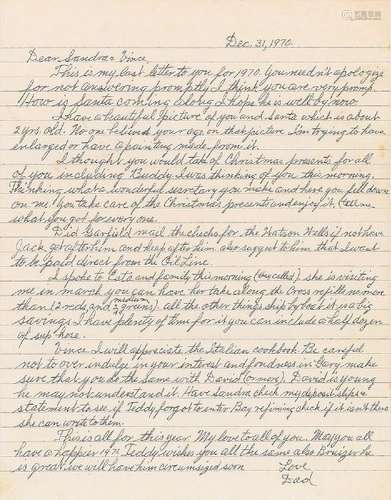 Dec. 31, 1970.
Dear Sandra & Vince,
This is my last letter to you for 1970. You needn't apologize
for not answering promptly I think you are very promp.
How is Santa coming along I hope he is well by now.
I have a beautiful picture of you and Santa which is about
2 yrs old. No one believes your age on that picture. I'm trying to have
enlarged or have a painting made from it.
I thought you would take of Christmas presents for all
of you including Buddy. I was thinking of you this morning.
Thinking what a wonderful secretary you make and have you fall down
on me! You take care of the Christmas presents and enjoy it. Tell me
what you got for every one.
Did Garfield mail the checks for the Watson Wells if not have
Jack get after him and keep after him also suggest to him that I want
to be paid direct from the Oil Line
I spoke to and family this morning (they called) she is visiting
me in march you can have her take along the Cross refills no more
than (2 reds and 3 medium greens) all the other things ship by boat it is a big
savings I have plenty of time for it you can include a half dozen
of sup-hose.
Vince I will appreciate the Italian cookbook. Be careful
not to over indulge in your interest and fondness in Gary make
sure that you do the same with David (or more) David is young
he may not understand it. Have Sandra check my deposit slips &
statement to see if Teddy forgot to enter Bay refining check if it isn't there
she can write to them.
This is all for this year. My love to all of you. May you all
have a happier 1971 Teddy wishes you all the same also Bruizer he
is great we will have him circumsized soon
Love
Dad